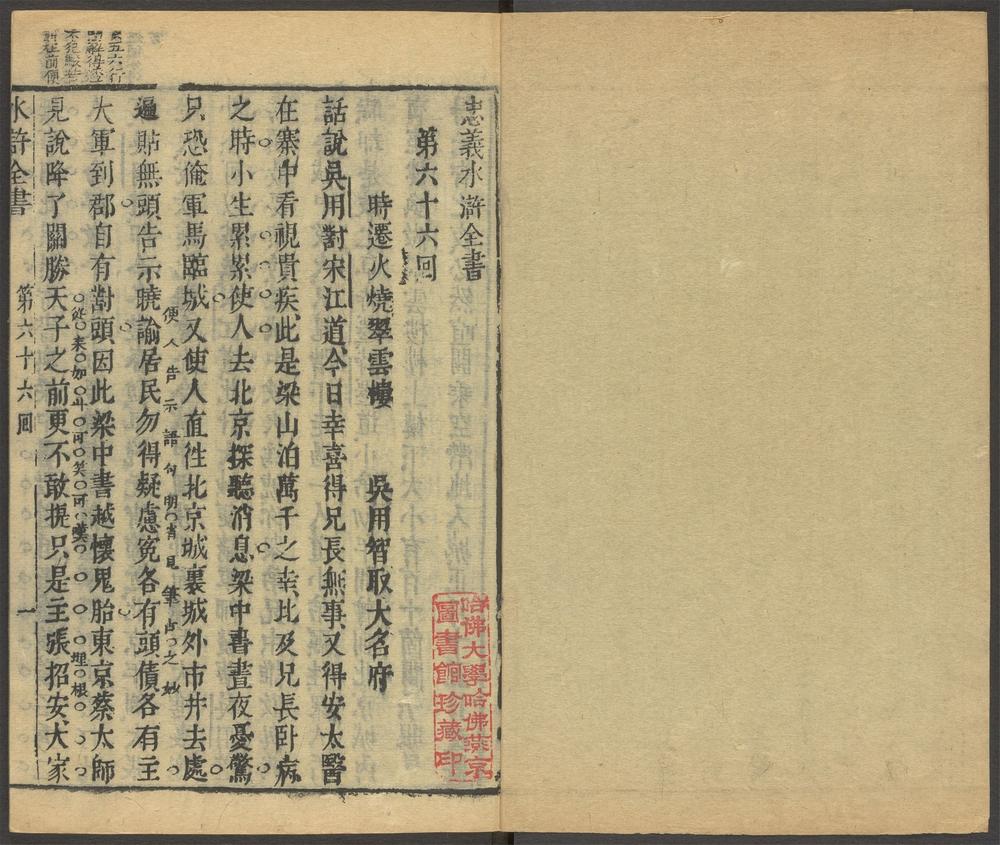 忠義水滸全書
第六十六回
時遷火燒翠雲樓 吳用智取大名府
話說吳用對宋江道今日幸喜得兄長無事又得安太醫
在寨中看視貴疾此是梁山泊萬千之幸比及兄長臥病
之時小生累累使人去北京探聽消息梁中書晝夜憂驚
只恐俺軍馬臨城又使人直徃北京城裏城外市井去處
遍貼無頭告示曉諭居民勿得疑慮冤各有頭債各有主
大軍到郡自有對頭因此梁中書越懷鬼胎東京蔡太師
可笑可嘆
見說降了關勝天子之前更不敢提只是主張招安大家
水滸全書 第六十六回 一
哈佛大學哈佛燕京
圖書館珍藏印